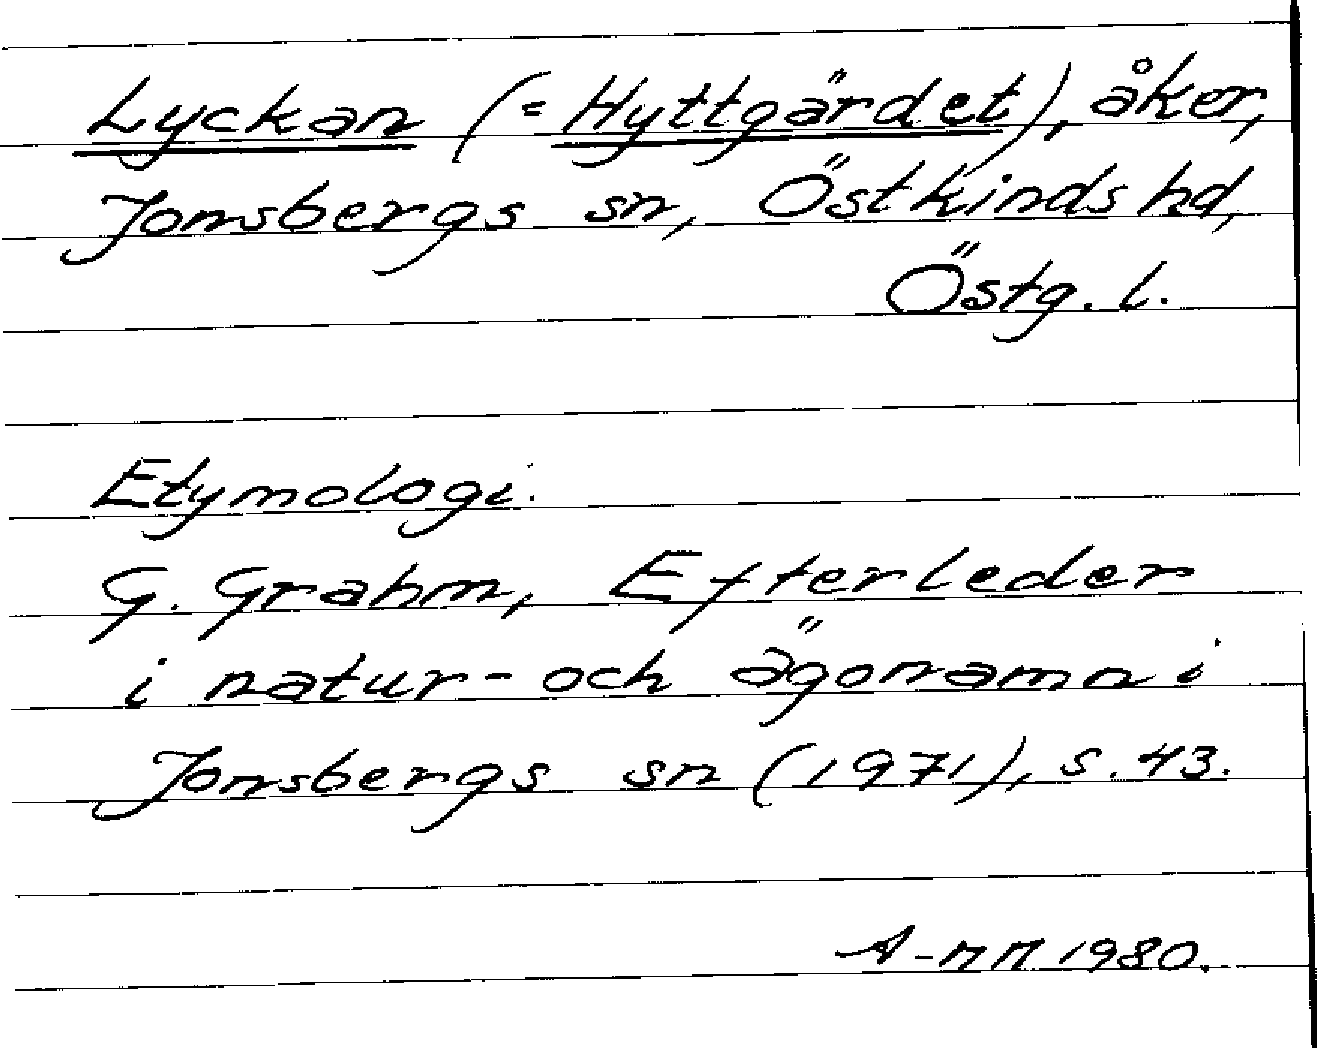 Lyckan (= Hyttgärdet), åker,
Jonsbergs sn, Östkinds hd,
Östg. l.
Etymologi.
G. Grahm, Efterleder
i natur- och ägonamn i
Jonsbergs sn (1971), s. 43.
A-MM 1980.